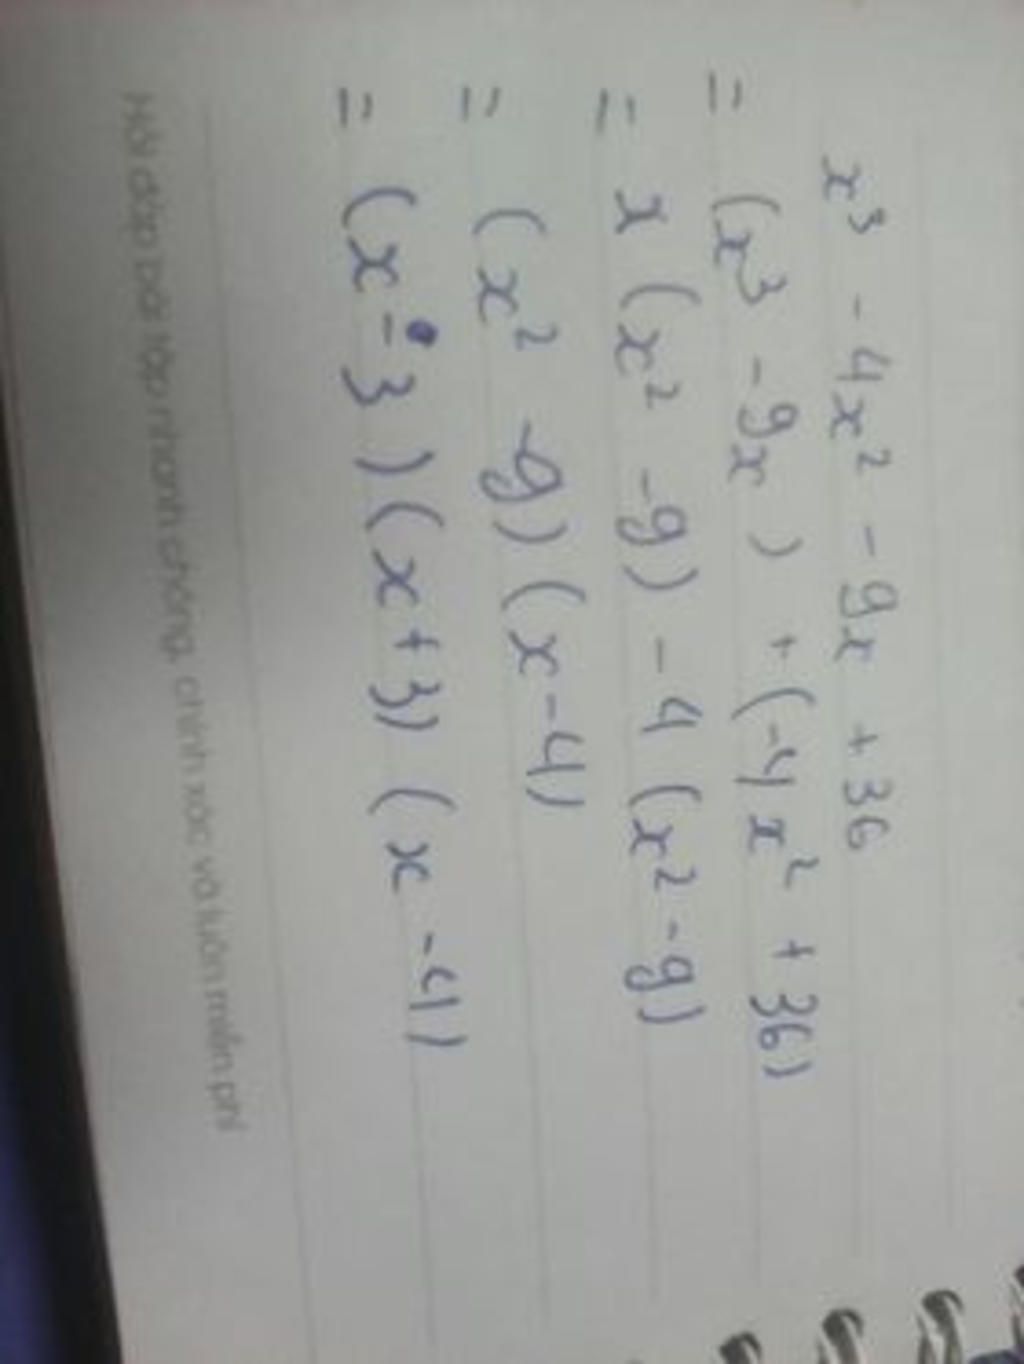 x³ - 4x² - 9x + 36
= (x³ - 9x) + (-4x² + 36)
= x (x² - 9) - 4 (x² - 9)
= (x² - 9) (x - 4)
= (x - 3) (x + 3) (x - 4)
Hỏi đáp bài tập nhanh chóng, chính xác và luôn miễn phí